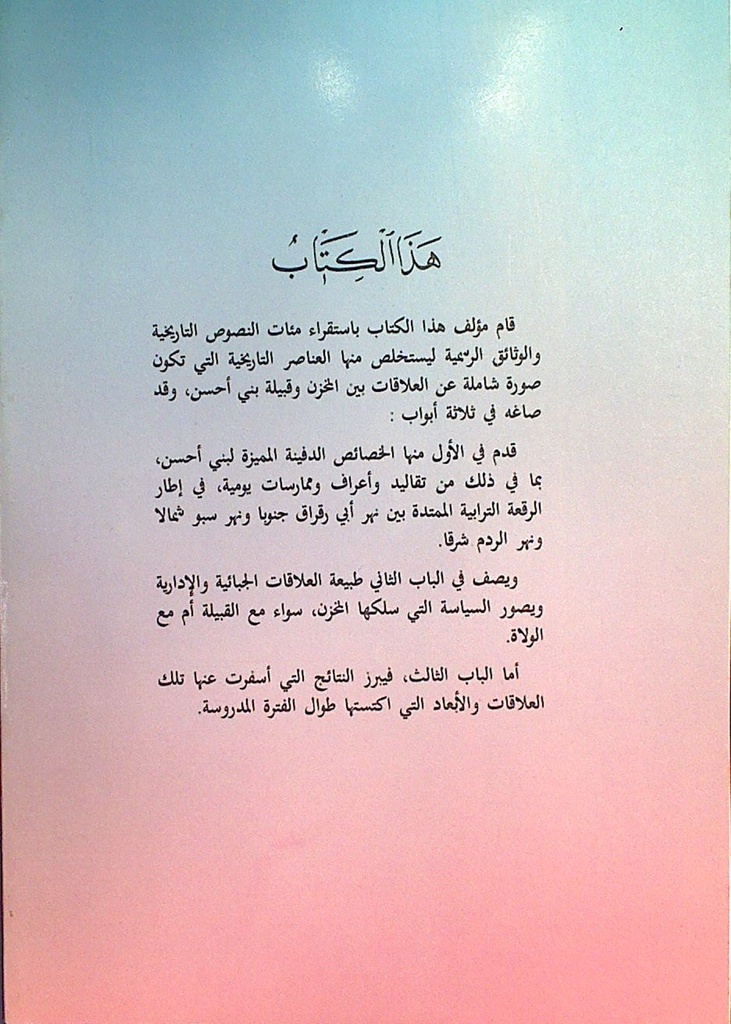 هَذَا الْكِتَابُ
قام مؤلف هذا الكتاب باستقراء مئات النصوص التاريخية
والوثائق الرسمية ليستخلص منها العناصر التاريخية التي تكون
صورة شاملة عن العلاقات بين المخزن وقبيلة بني أحسن، وقد
صاغه في ثلاثة أبواب :
قدم في الأول منها الخصائص الدفينة المميزة لبني أحسن،
بما في ذلك من تقاليد وأعراف وممارسات يومية، في إطار
الرقعة الترابية الممتدة بين نهر أبي رقراق جنوبا ونهر سبو شمالا
ونهر الردم شرقا.
ويصف في الباب الثاني طبيعة العلاقات الجبائية والإدارية
ويصور السياسة التي سلكها المخزن، سواء مع القبيلة أم مع
الولاة.
أما الباب الثالث، فيبرز النتائج التي أسفرت عنها تلك
العلاقات والأبعاد التي اكتستها طوال الفترة المدروسة.